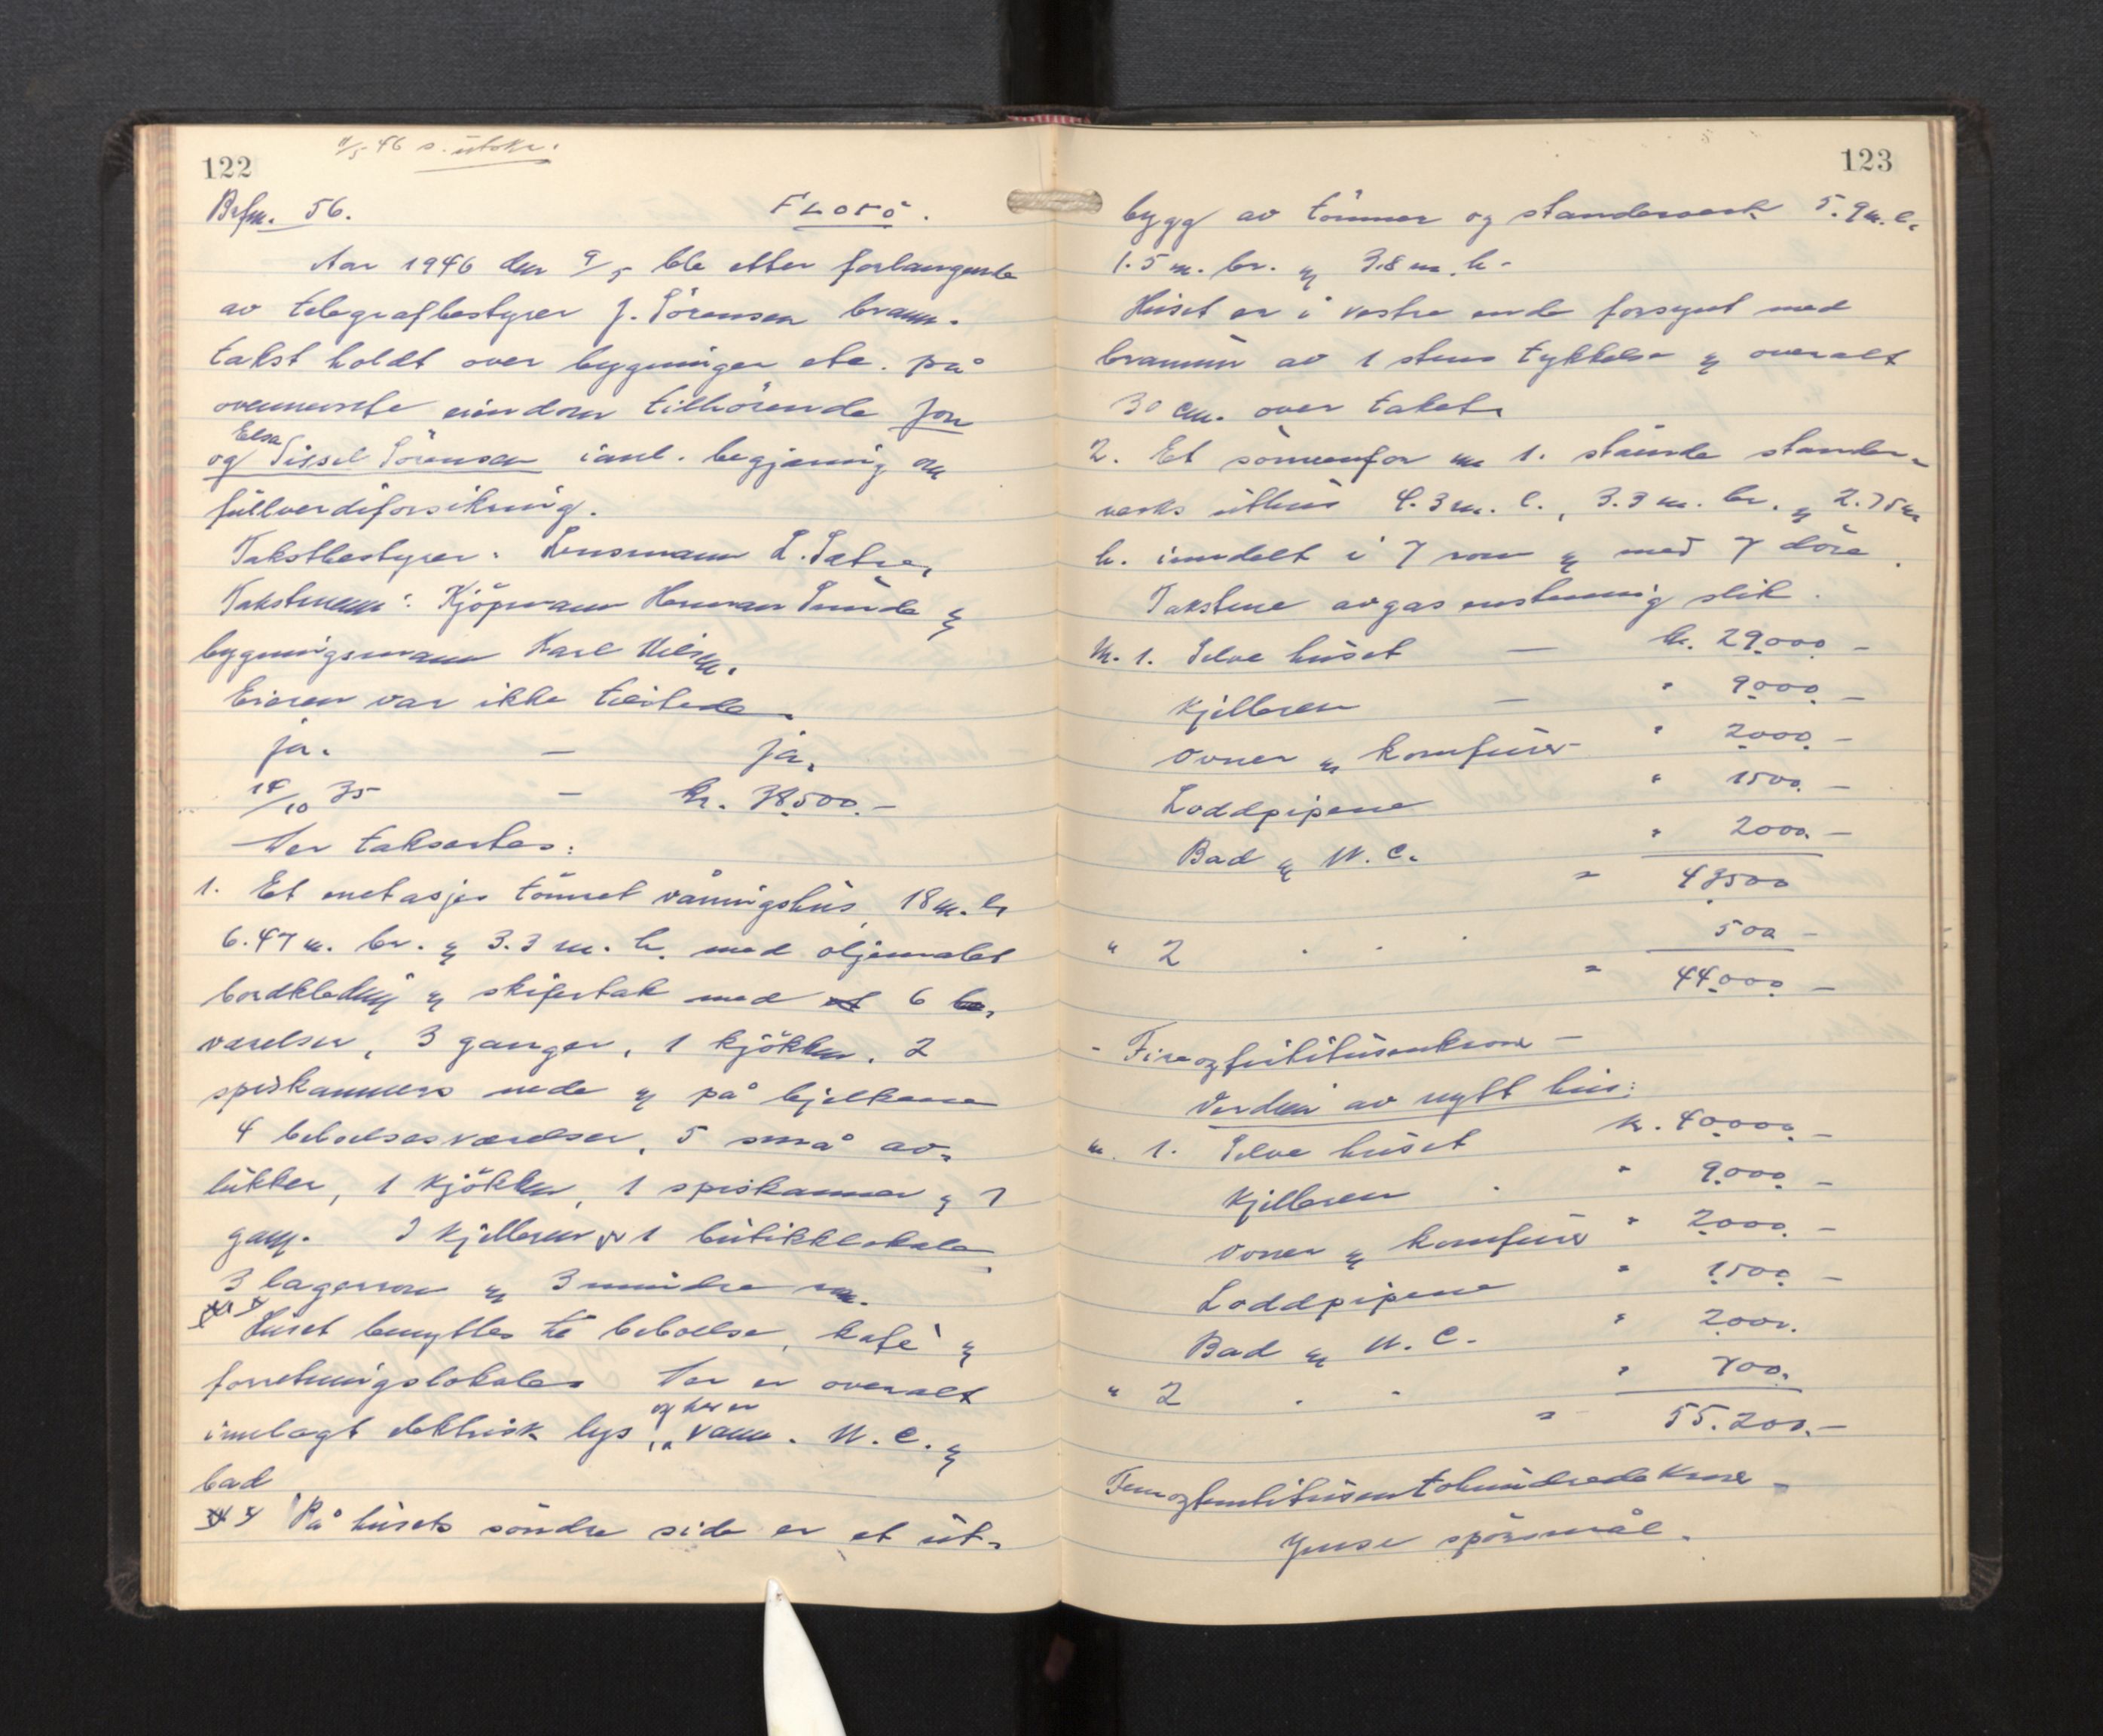 122
9/5 46 s. utskr.
Brfm. 56. FLORÖ.
Aar 1946 den 9/5 ble etter forlangende
av telegrafbestyrer J. Sörensen brann-
takst holdt over bygninger etc. på
ovennevnte eiendom tilhörende Jon
Elsa
og Sissel Sörensen i anl. begjæring om
fullverdiforsikring.
Takstbestyrer: Lensmann L. Sætre,
Takstmenn: Kjöpmann Herman Sunde og
bygningsmann Karl Nilsen.
Eieren var ikke tilstede.
ja. — ja.
14/10 35 — kr. 38.500.-
Her takseres:
1. Et enetasjes tömret våningshus, 18 m. l.
6.47 m. br. og 3.3 m. h. med oljemalet
bordkledning og skifertak med 6 be-
værelser, 3 ganger, 1 kjökken, 2
spiskammers nede og på bjelkene
4 beboelsesværelser, 5 små av-
lukker, 1 kjökken, 1 spiskammer og 1
gang. I kjelleren er 1 butikklokale,
3 lagerrom og 3 mindre rom.
Huset benyttes til beboelse, kafe og
forretningslokaler. Her er overalt
og her er
innlagt elektrisk lys, vann. W.C. og
bad
På husets söndre side er et ut-
123
bygg av tömmer og standerverk 5.9 m. l.
1.5 m. br. og 3.8 m. h.
Huset er i vestre ende forsynt med
brannmur av 1 stens tykkelse og overalt
30 cm. over taket.
2. Et sönnenfor nr 1. stående stander-
verks uthus 4.3 m. l., 3.3 m. br. og 2.75 m
h. inndelt i 7 rom og med 7 döre.
Takstene avgas enstemmig slik.
Nr. 1. Selve huset — kr. 29.000 -
Kjelleren — " 9.000. -
Ovner og komfurer " 2.000. -
Loddpipene " 1500. -
Bad og W.C. " 2000. -
" 43500
" 2 . . . 500 -
" 44.000 -
- Fireogförtitusenkroner -
Verdien av nytt hus:
nr. 1. Selve huset kr. 40.000. -
Kjelleren . " 9.000. -
Ovner og komfurer " 2.000. -
Loddpipene " 1.500. -
Bad og W.C. " 2.000.
" 2 . . " 700.
" 55.200.-
Femogfemtitusentohundredekroner -
Ymse spörsmål.